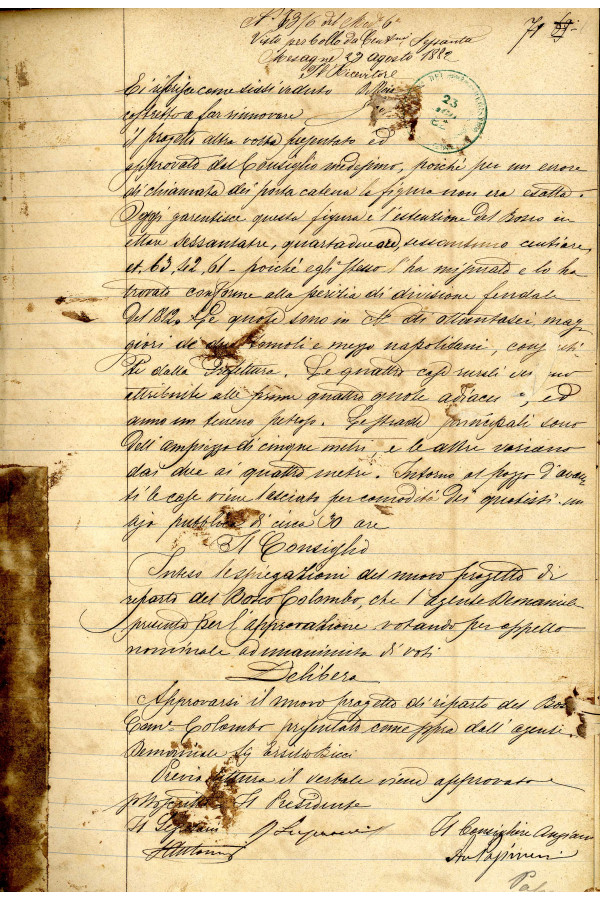 N. 1316 del Mod. 6°
Visto per bollo da Cent.mi Sessanta
Mesagne 23 agosto 1882
Il Ricevitore
71
23
82
Ei riferisce come siasi veduto
costretto a far rinnovare
il progetto altra volta presentato ed
approvato dal Consiglio medesimo, poichè per un errore
di chiamata dei porta catena la figura non era esatta.
Oggi garentisce questa figura e l'estenzione del Bosco in
ettare sessantatre, quarantadue are, sessantuno centiare,
et. 63, 42, 61 - poichè egli stesso l'ha misurato e lo ha
trovato conforme alla perizia di divisione feudale
del 1812. Le quote sono in N. di ottantasei, mag
giori de due tomoli e mezzo napolitani,
dalla Prefettura. Le quattro case rurali
attribuite alle prime quattro quote ed
anno un terreno petroso. Le strade principali sono
dell'ampiezza di cinque metri e le altre variano
dai due ai quattro metri. Intorno al pozzo d'avan
ti le case viene lasciato per comodità dei quotisti un
pubblica di circa 30 are
Il Consiglio
Inteso le spiegazioni del nuovo progetto di
riparto del Bosco Colombo, che l'agente Demaniale
presenta per l'approvazione votando per appello
nominale ad unanimità di voti
Delibera
Approvarsi il nuovo progetto di riparto del Bosco
Com.le Colombo presentato come sopra dall'agente
Demaniale Sig. Ersilio Bicci
Previa lettura il verbale viene approvato e
sottoscritto Il Presidente
Il Segretario
Il Consigliere Anziano